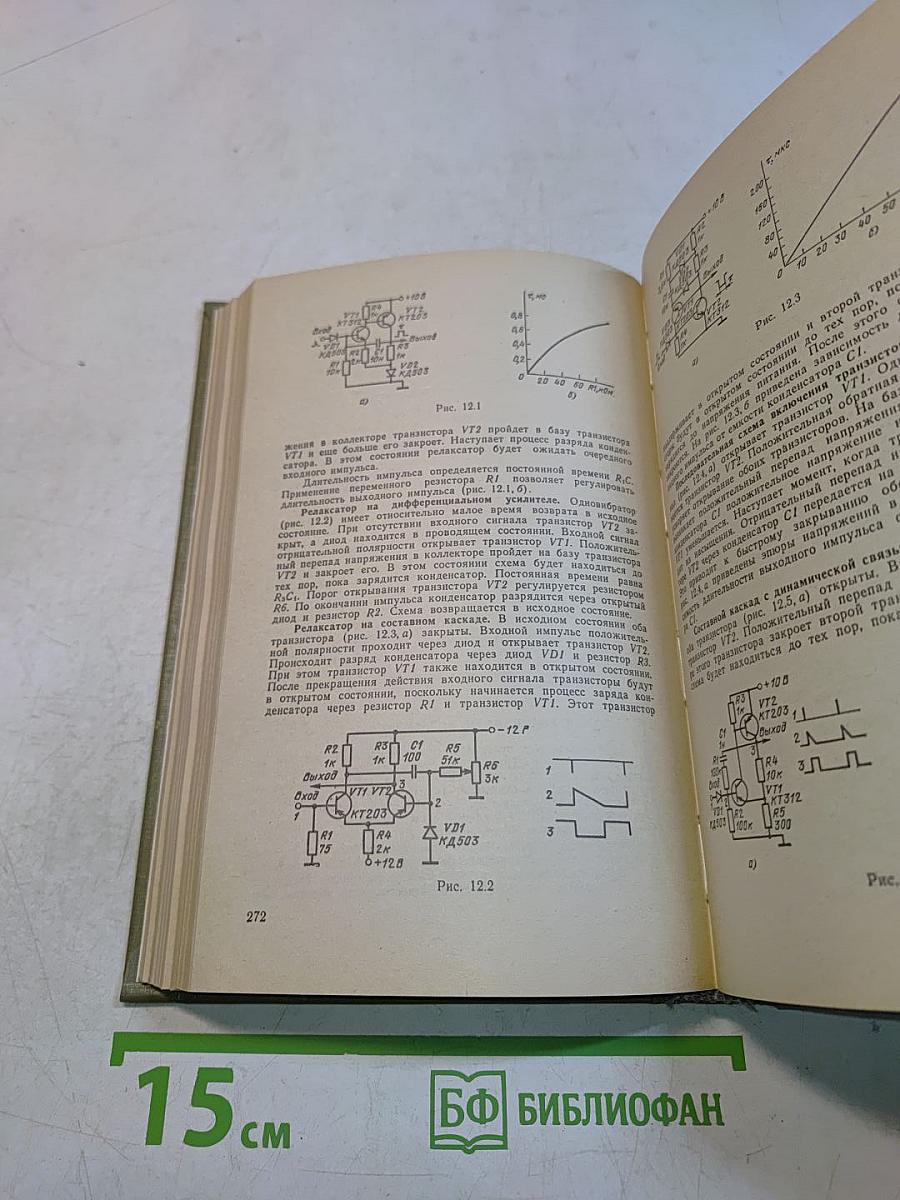 +10В
VT1
КТ312
R4
1к
VT2
КТ203
Вход
Выход
VD1
КД503
R1
10к
R2
2к
C1
10н
R3
1к
VD2
КД503
а)
τ, мс
0,8
0,6
0,4
0,2
0
20 40 60 80 R1, кОм
б)
Рис. 12.1
жения в коллекторе транзистора VT2 пройдет в базу транзистора
VT1 и еще больше его закроет. Наступает процесс разряда конден-
сатора. В этом состоянии релаксатор будет ожидать очередного
входного импульса.
Длительность импульса определяется постоянной времени R₁C.
Применение переменного резистора R1 позволяет регулировать
длительность выходного импульса (рис. 12.1, б).
Релаксатор на дифференциальном усилителе. Одновибратор
(рис. 12.2) имеет относительно малое время возврата в исходное
состояние. При отсутствии входного сигнала транзистор VT2 за-
крыт, а диод находится в проводящем состоянии. Входной сигнал
отрицательной полярности открывает транзистор VT1. Положитель-
ный перепад напряжения в коллекторе пройдет на базу транзистора
VT2 и закроет его. В этом состоянии схема будет находиться до
тех пор, пока зарядится конденсатор. Постоянная времени равна
R₅C₁. Порог открывания транзистора VT2 регулируется резистором
R6. По окончании импульса конденсатор разрядится через открытый
диод и резистор R2. Схема возвращается в исходное состояние.
Релаксатор на составном каскаде. В исходном состоянии оба
транзистора (рис. 12.3, а) закрыты. Входной импульс положитель-
ной полярности проходит через диод и открывает транзистор VT2.
Происходит разряд конденсатора через диод VD1 и резистор R3.
При этом транзистор VT1 также находится в открытом состоянии.
После прекращения действия входного сигнала транзисторы будут
в открытом состоянии, поскольку начинается процесс заряда кон-
денсатора через резистор R1 и транзистор VT1. Этот транзистор
R2
1к
R3
1к
C1
100
R5
51к
R6
3к
Выход
Вход
1
VT1 VT2
КТ203
3
2
R1
75
R4
2к
+12В
VD1
КД503
1
2
3
Рис. 12.2
272
+10В
Выход
VT2
КТ312
а)
τ, мкс
200
160
120
80
40
0
10 20 30 40 50
б)
Рис. 12.3
в открытом состоянии и второй
будут в открытом состоянии до тех пор,
до напряжения питания. После этого
На рис. 12.3, б приведена зависимость
импульса от емкости конденсатора C1.
схема включения транзисторов
(рис. 12.4, а) открывает транзистор VT1.
транзистор VT2. Положительная обратная
открывание обоих транзисторов. На
положительный перепад напряжения
уменьшается. Наступает момент, когда
Отрицательный перепад
VT2 через конденсатор C1 передается на
приводит к быстрому закрыванию
рис. 12.4, а приведены эпюры напряжений в
длительности выходного импульса
C1.
Составной каскад с динамической связью.
транзистора (рис. 12.5, а) открыты.
транзистор VT2. Положительный перепад
этого транзистора закроет второй
схема будет находиться до тех пор, пока
+10В
R3
1к
VT2
КТ203
C1
1н
Выход
R1
100к
3
R4
10к
Вход
VD1
КД503
R2
100к
VT1
КТ312
R5
300
а)
1
2
3
Рис.
15 см
БФ БИБЛИОФАН